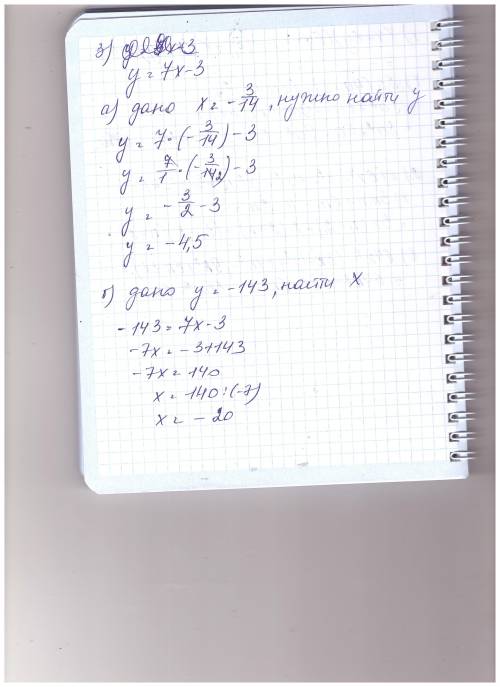 3)
y = 7x - 3
а) дано x = - 3/14, нужно найти y
y = 7 · (- 3/14) - 3
y = 7/1 · (- 3/14 2) - 3
y = - 3/2 - 3
y = -4,5
б) дано y = -143, найти x
-143 = 7x - 3
-7x = -3+143
-7x = 140
x = 140 : (-7)
x = -20